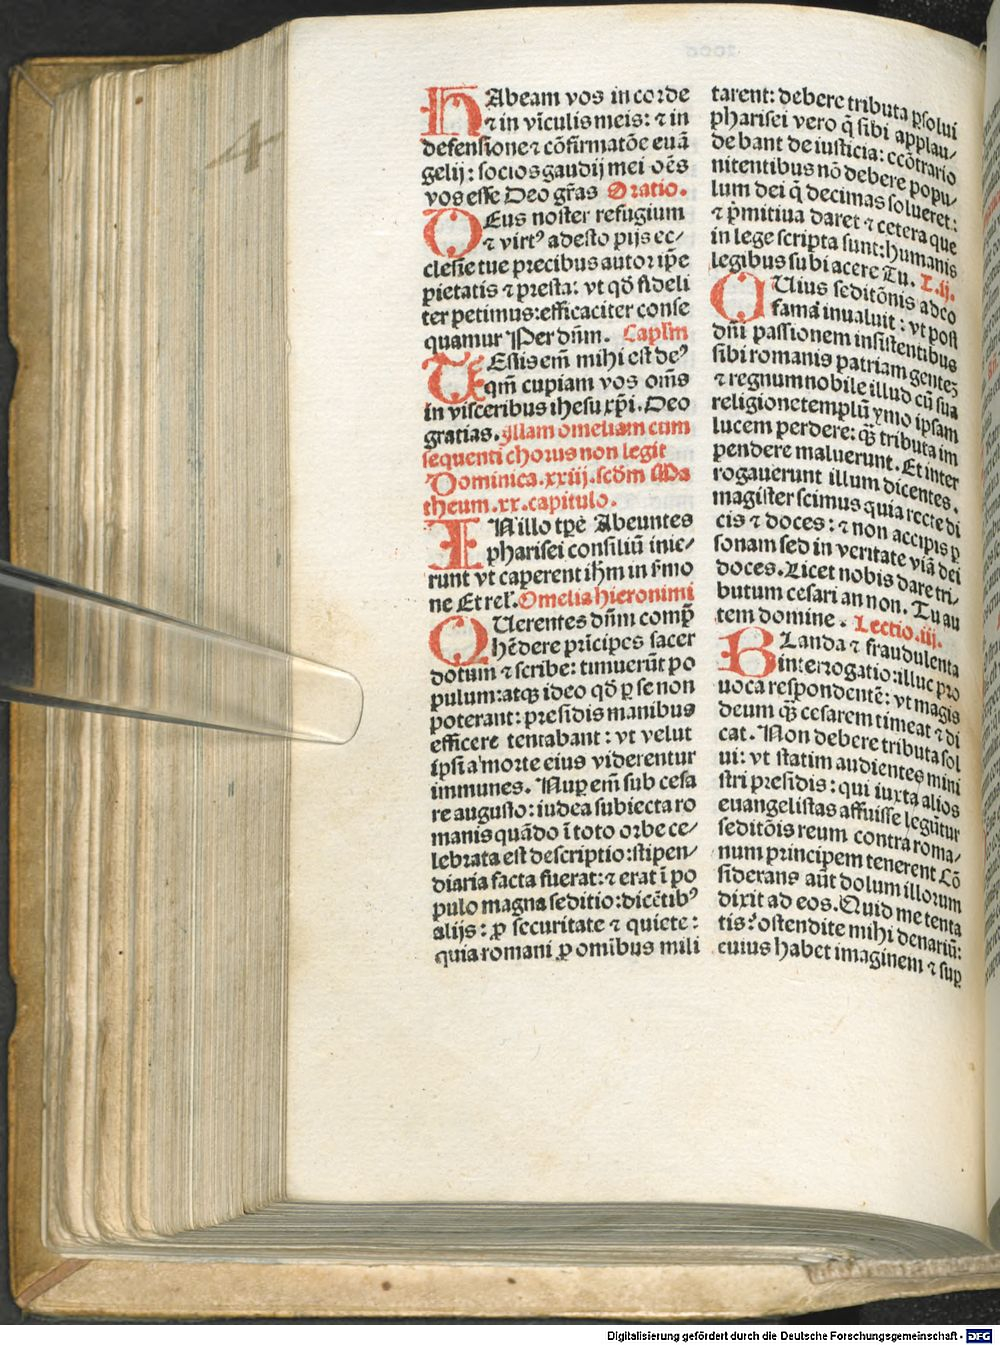 HAbeam vos in corde
⁊ in vīculis meis: ⁊ in
defensione ⁊ cōfirmatōe euā
gelij: socios gaudij mei oēs
vos esse Deo gr̄as Oratio.
DEus noster refugium
⁊ virtꝰ adesto pijs ec⸗
clesie tue precibus autor ip̄e
pietatis ⁊ presta: vt qd̄ fideli
ter petimus: efficaciter conse
quamur Per dn̄m. Capl'm
TEstis em̄ mihi est deꝰ
qm̄ cupiam vos om̄s
in visceribus ihesu xp̄i. Deo
gratias. Illam omeliam cum
sequenti chorus non legit
Dominica. xxiij. scd̄m Ma
theum. xx. capitulo.
IN illo tp̄e Abeuntes
pharisei consiliū inie⸗
runt vt caperent ih̄m in s̄mo
ne Et rel'. Omelia hieronimi
QUerentes dn̄m comp̄
hēdere pricipes sacer
dotum ⁊ scribe: timuerūt po
pulum: atqꝫ ideo qd̄ ꝑ se non
poterant: presidis manibus
efficere tentabant: vt velut
ipsi a morte eius viderentur
immunes. Nuꝑ em̄ sub cesa
re augusto: iudea subiecta ro
manis quādo ī toto orbe ce⸗
lebrata est descriptio: stipen⸗
diaria facta fuerat: ⁊ erat ī po
pulo magna seditio: dicētibꝰ
alijs: ꝓ securitate ⁊ quiete:
quia romani ꝓ omībus mili
tarent: debere tributa ꝑsolui
pharisei vero q̄ sibi applau⸗
debant de iusticia: ecōtrario
nitentibus nō debere popu⸗
lum dei q̄ decimas solueret:
⁊ p̄mitiua daret ⁊ cetera que
in lege scripta sunt: humanis
legibus subiacere Tu. L. ij.
CUius seditōnis adeo
fama inualuit: vt post
dn̄i passionem insistentibus
sibi romanis patriam genteꝫ
⁊ regnum nobile illud cū sua
religione templū ymo ipsam
lucem perdere: qꝫ tributa im
pendere maluerunt. Et inter
rogauerunt illum dicentes.
magister scimus quia recte di
cis ⁊ doces: ⁊ non accipis ꝑ
sonam sed in veritate viā dei
doces. Licet nobis dare tri⸗
butum cesari an non. Tu au
tem domine. Lectio. iij.
BLanda ⁊ fraudulenta
interrogatio: illuc pro
uoca respondentē: vt magis
deum qꝫ cesarem timeat ⁊ di
cat. Non debere tributa sol
ui: vt statim audientes mini
stri presidis: qui iuxta alios
euangelistas affuisse legūtur
seditōis reum contra roma⸗
num principem tenerent Cō
siderans aūt dolum illorum
dixit ad eos. Quid me tenta
tis: ostendite mihi denariū:
cuius habet imaginem ⁊ suꝑ
4
Digitalisierung gefördert durch die Deutsche Forschungsgemeinschaft - DFG